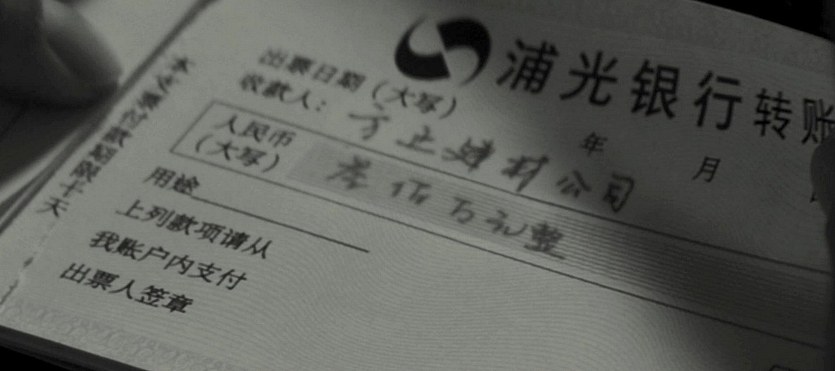 浦光银行转账
出票日期(大写) 年 月
收款人:方上建材公司
本支票付款期限十天
人民币
(大写) 叁佰万元整
用途
上列款项请从
我账户内支付
出票人签章